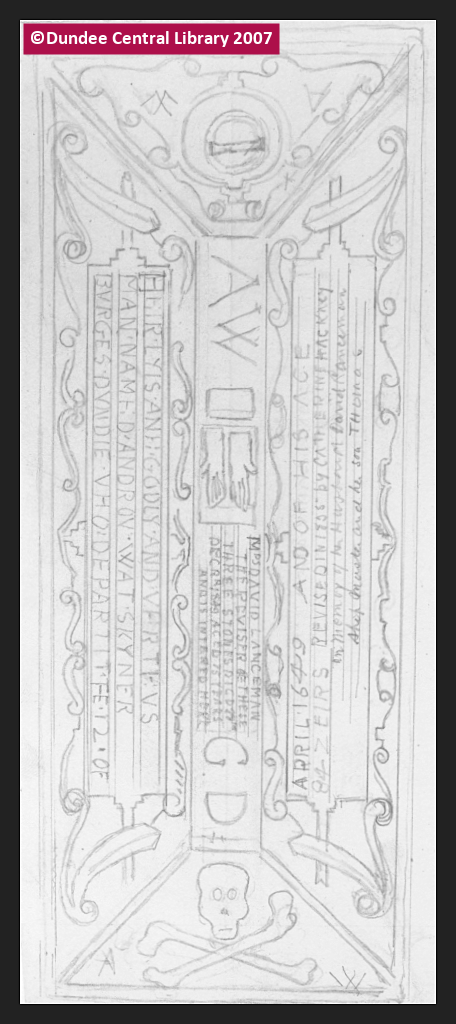 ©Dundee Central Library 2007
W
A
K
AW
HEIR LYIS ANE GODLY AND VERTEVS
MAN NAMED ANDROV WAT SKYNER
BVRGES DVNDIE VHO DEPARTIT FE 12 OF
APRIL 1649 AND OF HIS AGE
84 ZEIRS REVISED IN 1806 by CATHERINE HACKNEY
in memory of her Husband David Langeman
Ship Master and her son THOMAS
Mrs DAVID LANGEMAN
THE REVISER OF THESE
THREE STONES DIED
DECR AGED 75 YEARS
AND IS INTERED HERE
G D
K
W